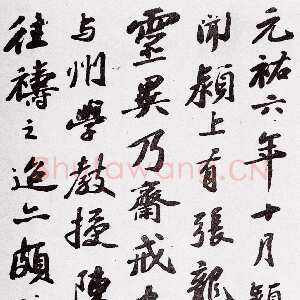 元祐六年十月潁
聞潁上有張龍
靈異乃齋戒
与州學教授陳
往禱之迨亦頗